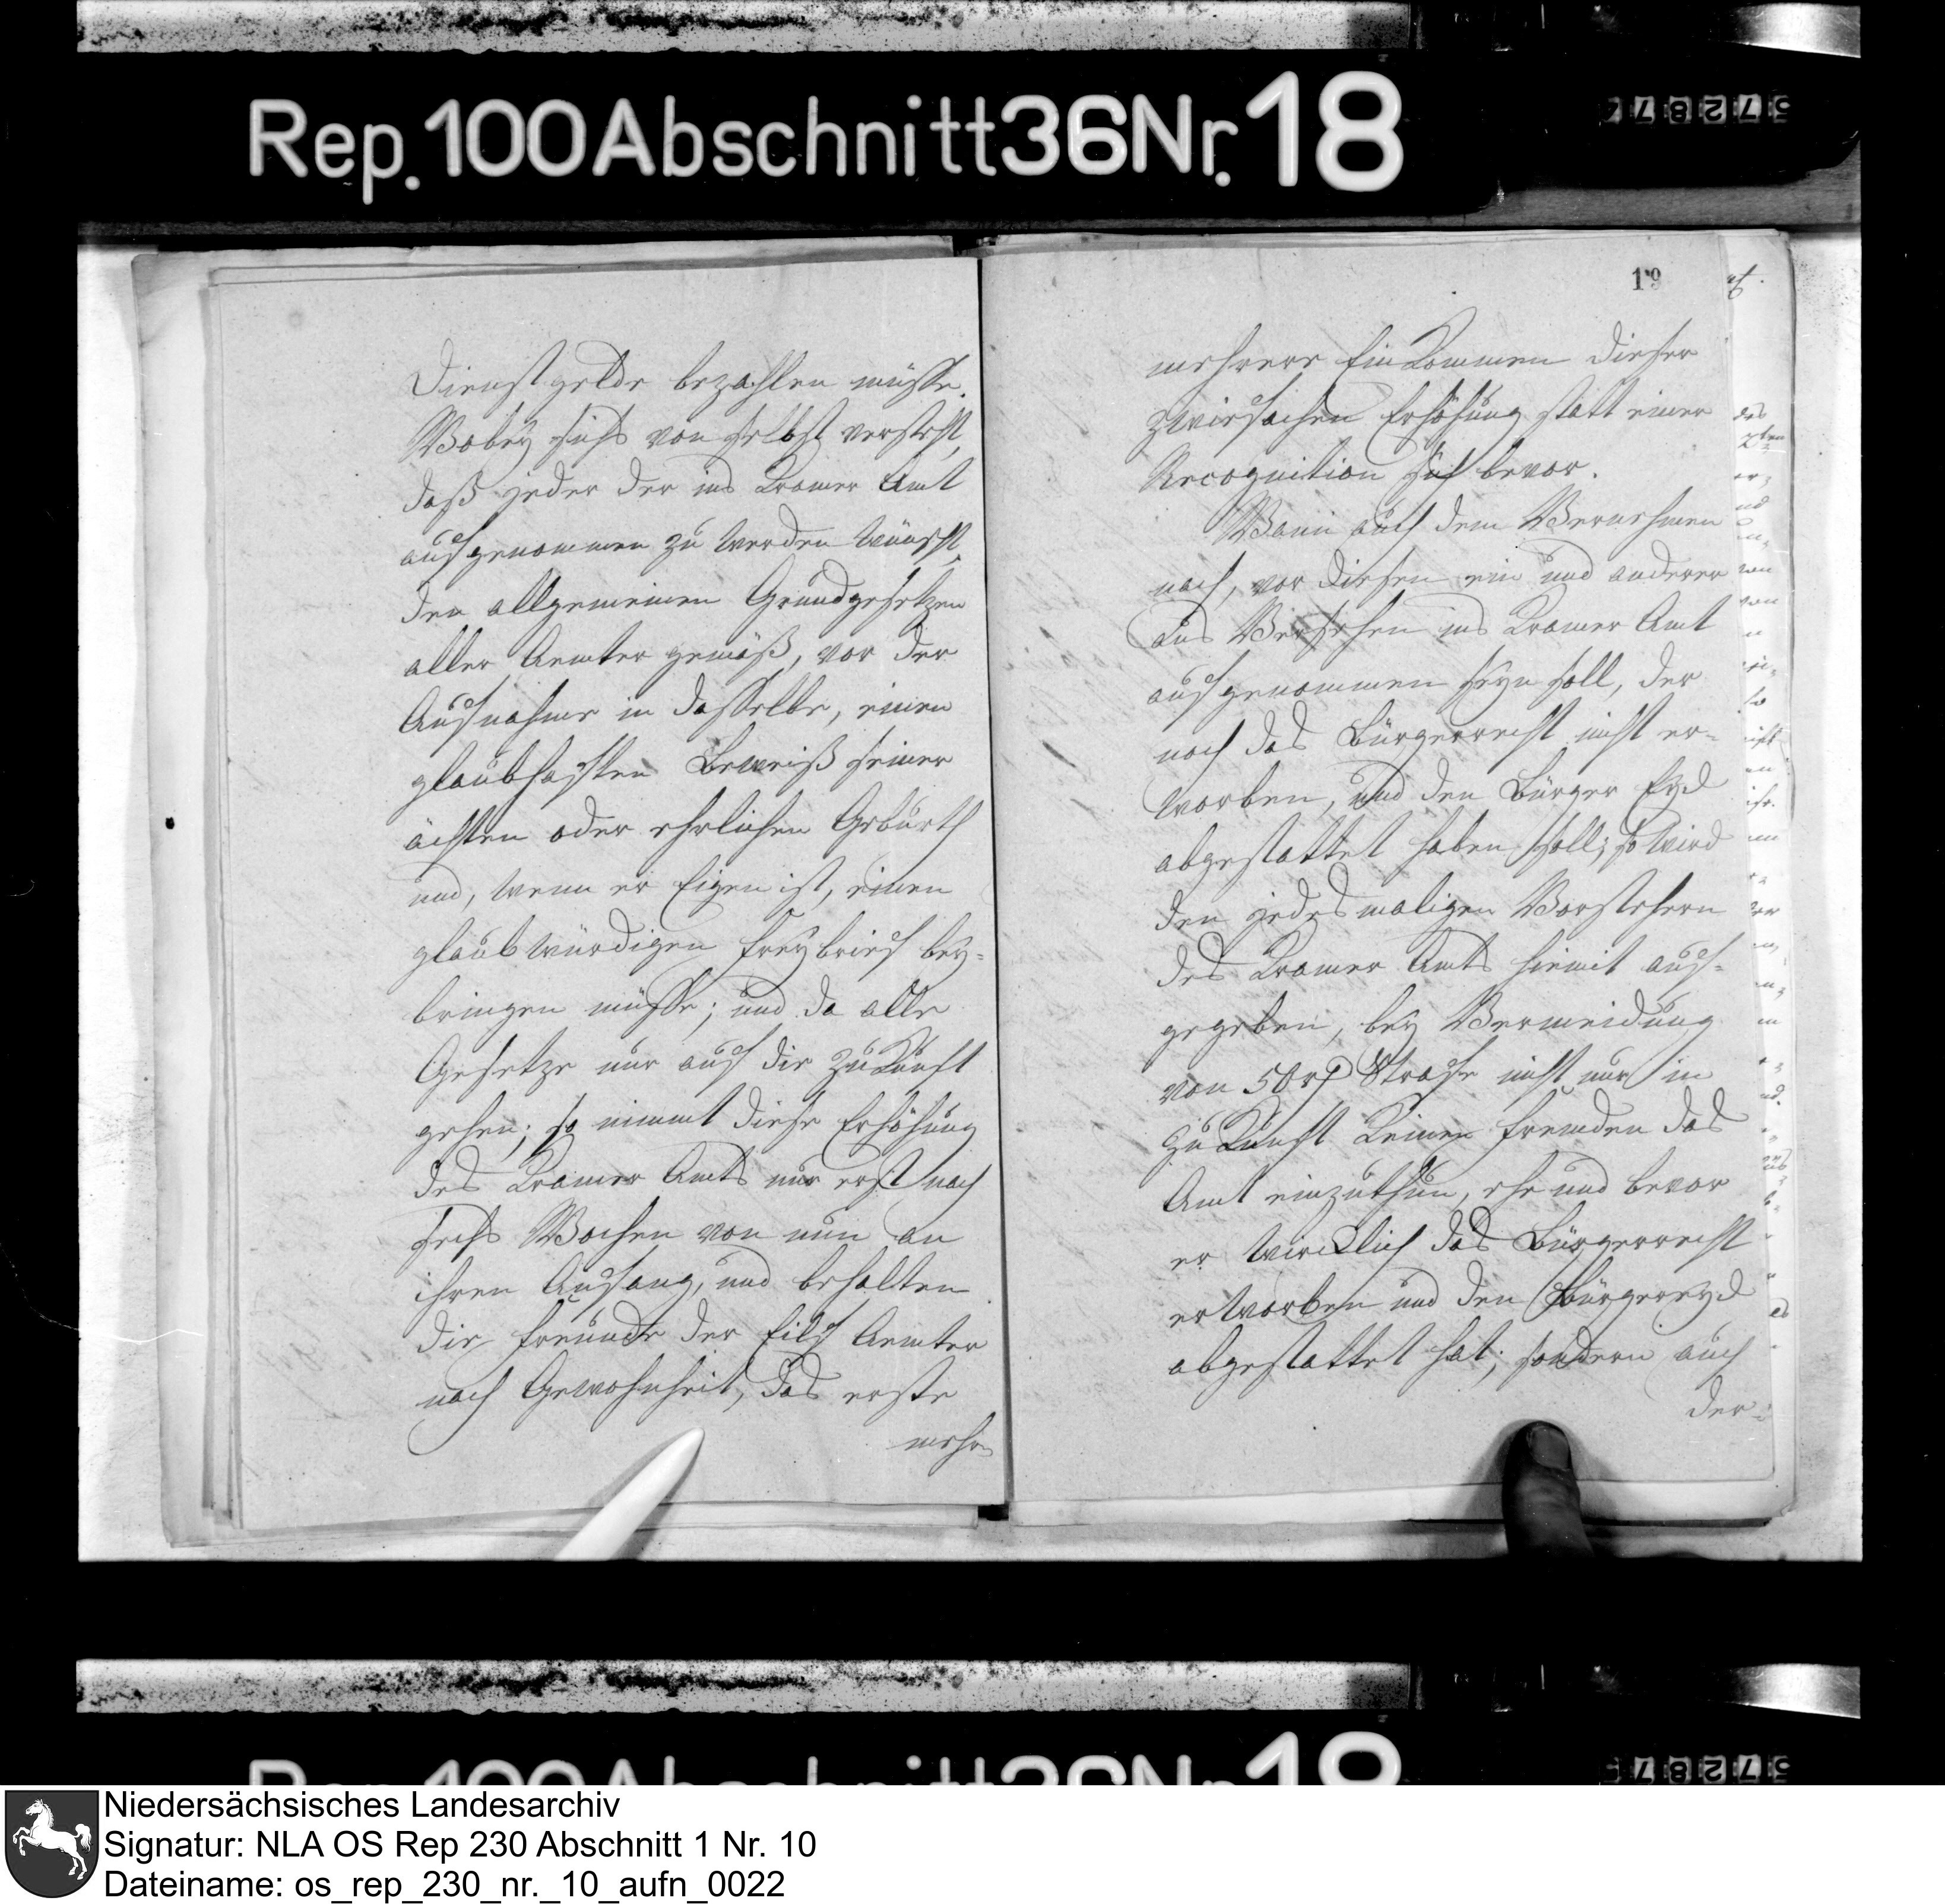 Rep. 100 Abschnitt 36 Nr. 18
Dienstgelde bezahlen müsse.
Wobey sichs von selbst versteht,
daß jeder der ins Kramer Amt
aufgenommen zu werden wünscht,
den allgemeinen Grundgesetzen
aller Aemter gemäß, vor der
Aufnahme in dasselbe, einen
glaubhaften Beweiß seiner
ächten oder ehrlichen Geburth
und, wenn er Eigen ist, einen
glaubwürdigen Freybrief bey-
bringen müsse; und da alle
Gesetze nur auf die Zukunft
gehen; so nimmt diese Erhöhung
des Kramer Amts nur erst nach
sechs Wochen von nun an
ihren Anfang, und behalten
die Freunde der Eilf Aemter
nach Gewohnheit, das erste
mehr-
19
mehrere Einkommen dieser
zwiefachen Erhöhung statt einer
Recognition sich bevor.
Wann auch dem Vernehmen
nach, vor diesen ein und anderer
aus Versehen ins Kramer Amt
aufgenommen seyn soll, der
noch das Bürgerrecht nicht er-
worben, und den Bürger Eyd
abgestattet haben soll; so wird
den jedesmaligen Vorstehern
des Kramer Amts hiemit auf-
gegeben, bey Vermeidung
von 50 rt Strafe nicht nur in
Zukunft keinen Fremden das
Amt einzuthun, ehe und bevor
er wircklich das Bürgerrecht
erworben und den Bürgereyd
abgestattet hat; sondern auch
der-
Niedersächsisches Landesarchiv
Signatur: NLA OS Rep 230 Abschnitt 1 Nr. 10
Dateiname: os_rep_230_nr._10_aufn_0022